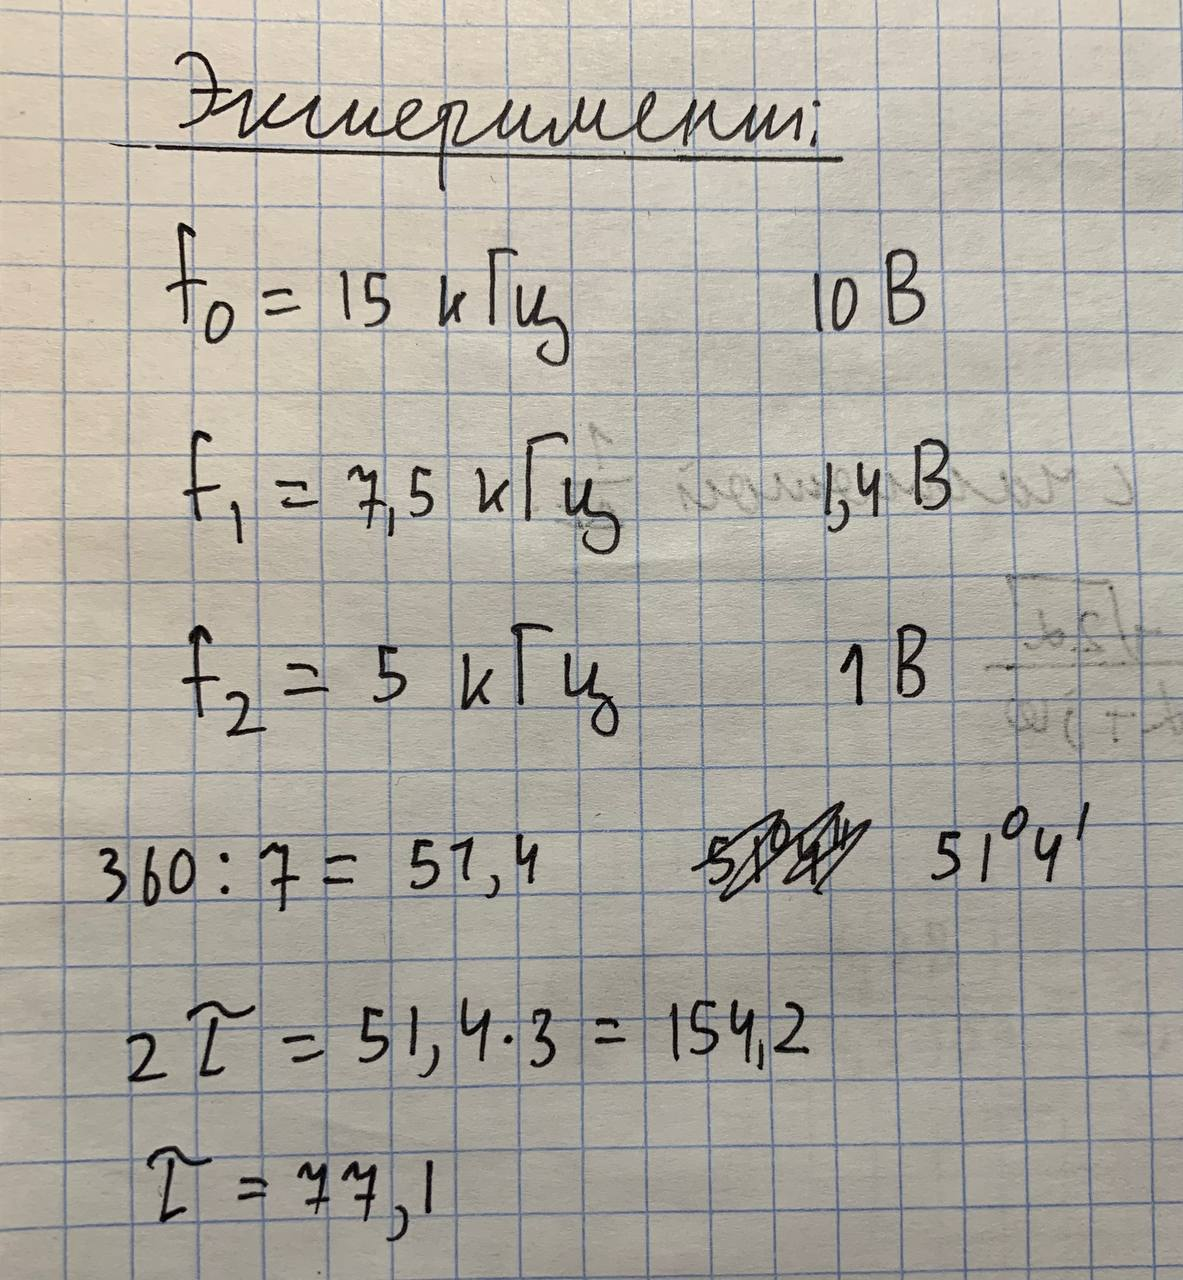 Эксперимент:
f₀ = 15 кГц 10 В
f₁ = 7,5 кГц 1,4 В
f₂ = 5 кГц 1 В
360 : 7 = 51,4 51°4'
2τ = 51,4 · 3 = 154,2
τ = 77,1